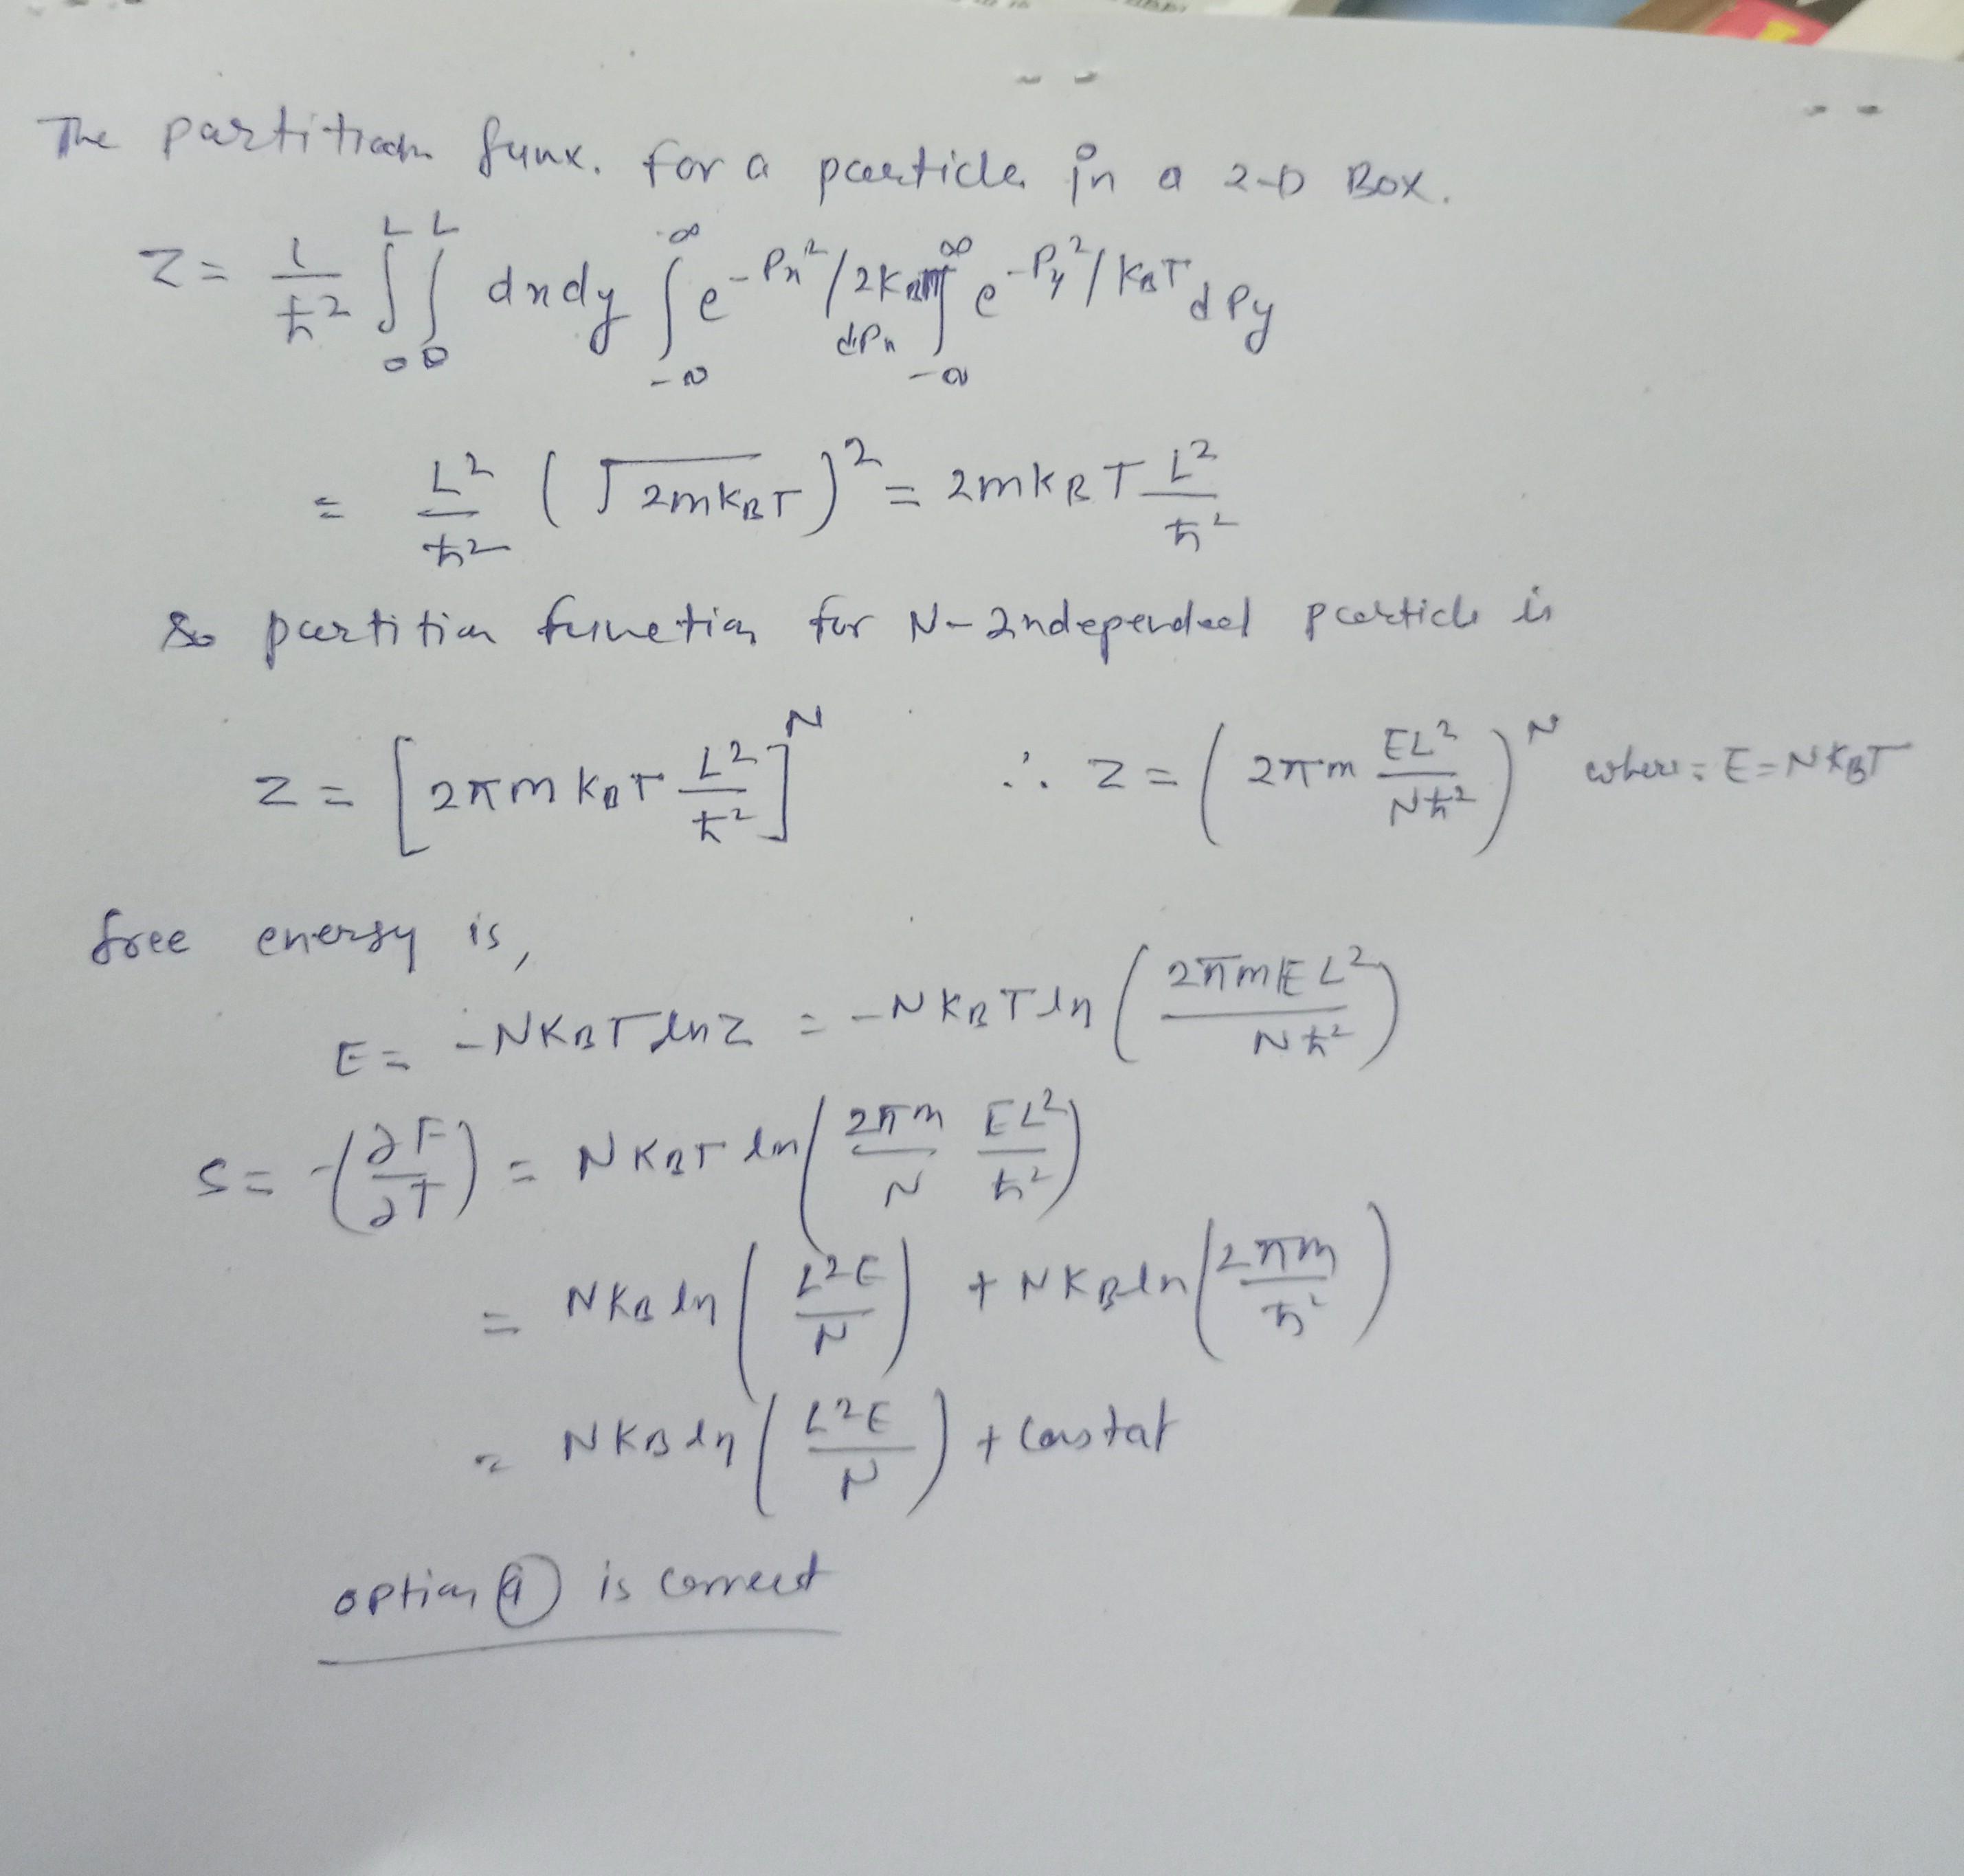 The partition funx. for a particle in a 2-D Box.
Z = 1/ħ² ∫₀ᴸ ∫₀ᴸ dxdy ∫₋∞^∞ e^(-Px²/2KBmT) dPx ∫₋∞^∞ e^(-Py²/KBT) dPy
= L²/ħ² (√2mKBT)² = 2mKBT L²/ħ²
So partition function for N-Independent particle is
Z = [2πm KBT L²/ħ²]^N ∴ Z = (2πm EL²/Nħ²)^N where = E = NKBT
free energy is,
E = -NKBT ln Z = -NKBT ln (2πmEL²/Nħ²)
S = -(∂F/∂T) = NKBT ln (2πm/N EL²/ħ²)
= NKB ln (L²E/N) + NKB ln (2πm/ħ²)
= NKB ln (L²E/N) + Constat
option is correct